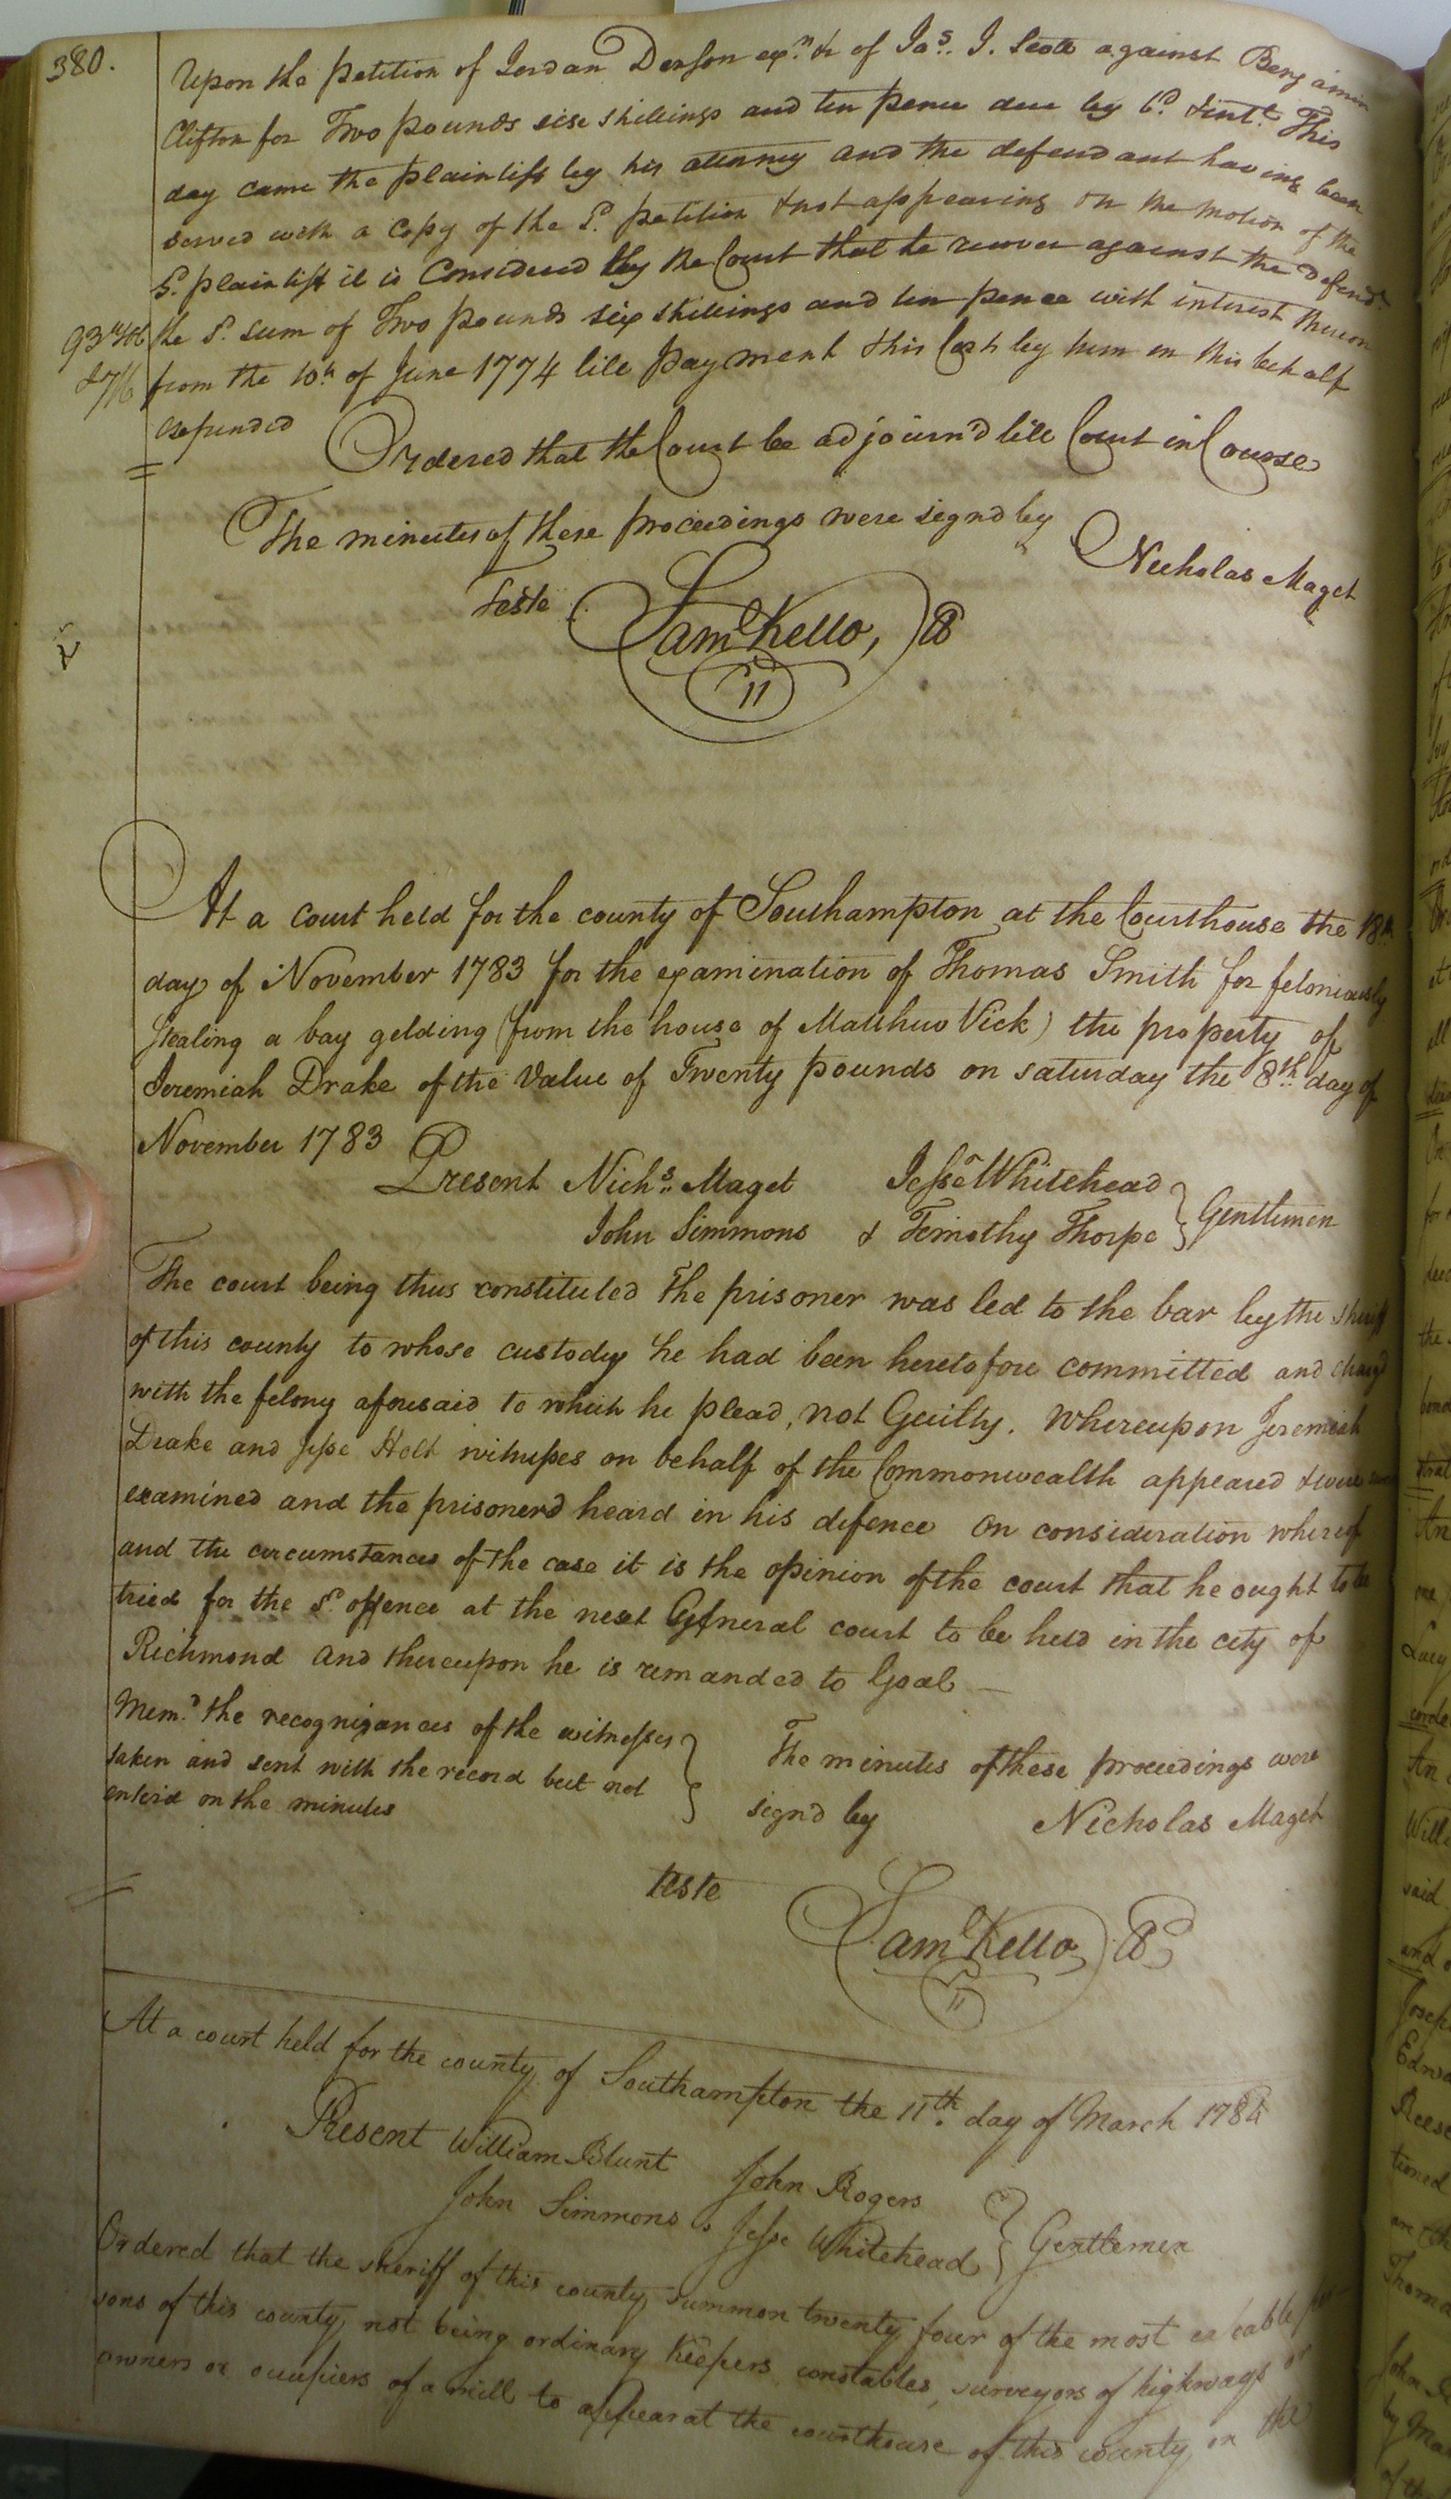 380.
Upon the petition of Jordan Denson exr. &c of Jas. J. Scott against Benjamin
Clifton for Two pounds six shillings and ten pence due by bd. & intt. This
day came the plaintiff by his attorney and the defendant having been
served with a Copy of the sd. petition & not appearing on the motion of the
sd. plaintiff it is Considered by the Court that he recover against the defendt.
the sd. sum of Two pounds six shillings and ten pence with interest thereon
from the 10th of June 1774 till payment & his Costs by him in this behalf
expended
Ordered that the Court be adjourn'd till Court in Course
The minutes of these proceedings were signd by
Nicholas Maget
Teste
Saml Kello, CC
At a Court held for the county of Southampton at the Courthouse the 18th
day of November 1783 for the examination of Thomas Smith for feloniously
stealing a bay gelding (from the house of Matthew Vick) the property of
Jeremiah Drake of the Value of Twenty pounds on saturday the 8th day of
November 1783
Present Nichs. Maget Jesse Whitehead
John Simmons & Timothy Thorpe } Gentlemen
The court being thus constituted The prisoner was led to the bar by the sheriff
of this county to whose custody he had been heretofore committed and charg'd
with the felony aforesaid to which he plead, not Guilty. Whereupon Jeremiah
Drake and Jesse Holt witnesses on behalf of the Commonwealth appeared & were
examined and the prisoner heard in his defence On consideration whereof
and the circumstances of the case it is the opinion of the court that he ought to be
tried for the sd. offence at the next General court to be held in the city of
Richmond and thereupon he is remanded to Goal —
Memd. the recognizances of the witnesses
taken and sent with the record but not
enterd on the minutes
The minutes of these proceedings were
signd by Nicholas Maget
teste
Saml Kello CC
At a court held for the county of Southampton the 11th. day of March 1784
Present William Blunt John Rogers
John Simmons & Jesse Whitehead } Gentlemen
Ordered that the sheriff of this county summon twenty four of the most capable per
sons of this county not being ordinary Keepers constables, surveyors of highways or
owners or occupiers of a mill to appear at the courthouse of this county on the